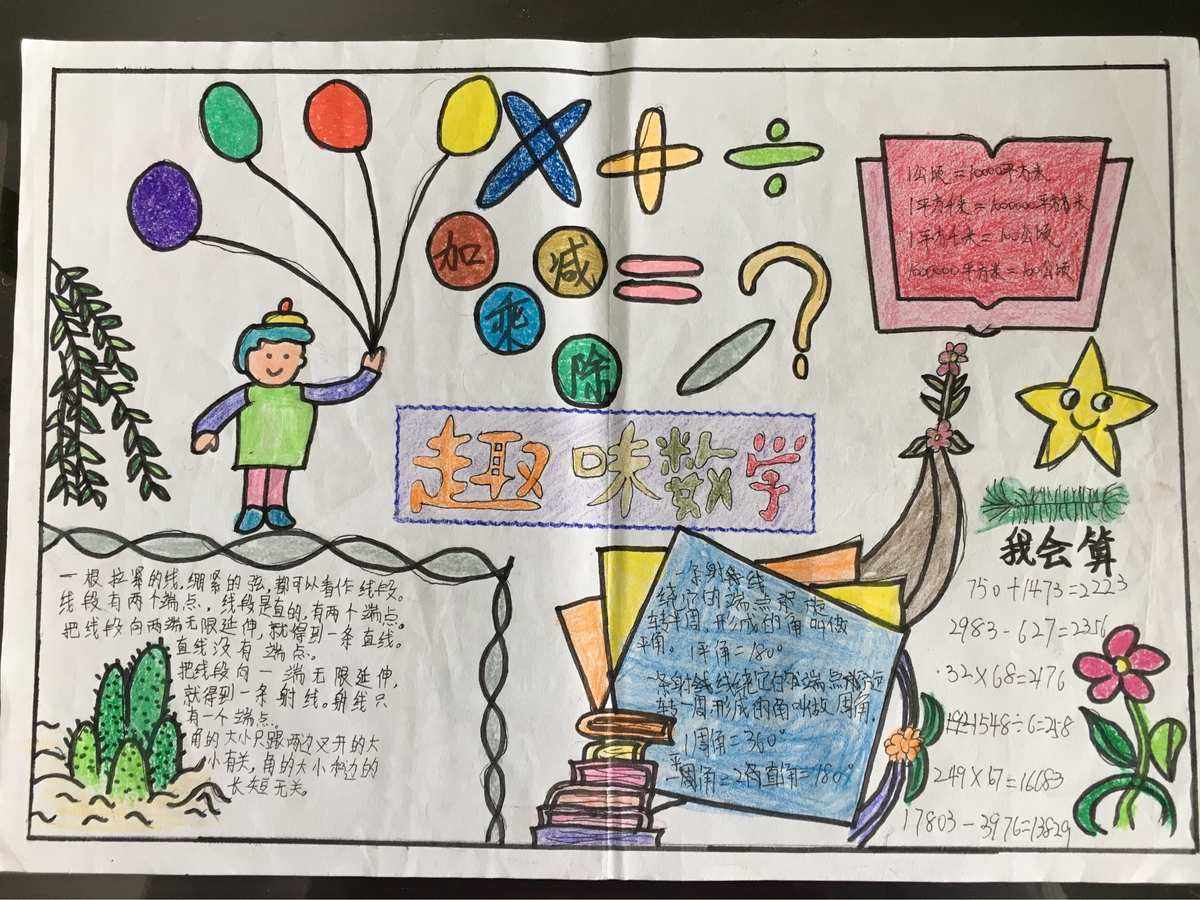 加
减
乘
除
1公顷=10000平方米
1平方千米=1000000平方米
1平方千米=100公顷
1000000平方米=100公顷
趣味数学
一根拉紧的线,绷紧的弦,都可以看作线段。
线段有两个端点,线段是直的,有两个端点。
把线段向两端无限延伸,就得到一条直线。
直线没有端点。
把线段向一端无限延伸,
就得到一条射线。射线只
有一个端点。
角的大小只跟两边叉开的大
小有关,角的大小和边的
长短无关。
一条射线
绕它的端点
转半周,形成的角叫做
平角。1平角=180°
一条射线绕它的端点
转一周形成的角叫做周角,
1周角=360°
角=2个直角=180°
我会算
750+1473=2223
2983-627=2356
32×68=2176
1548÷6=258
249×67=16683
17803-3976=13829